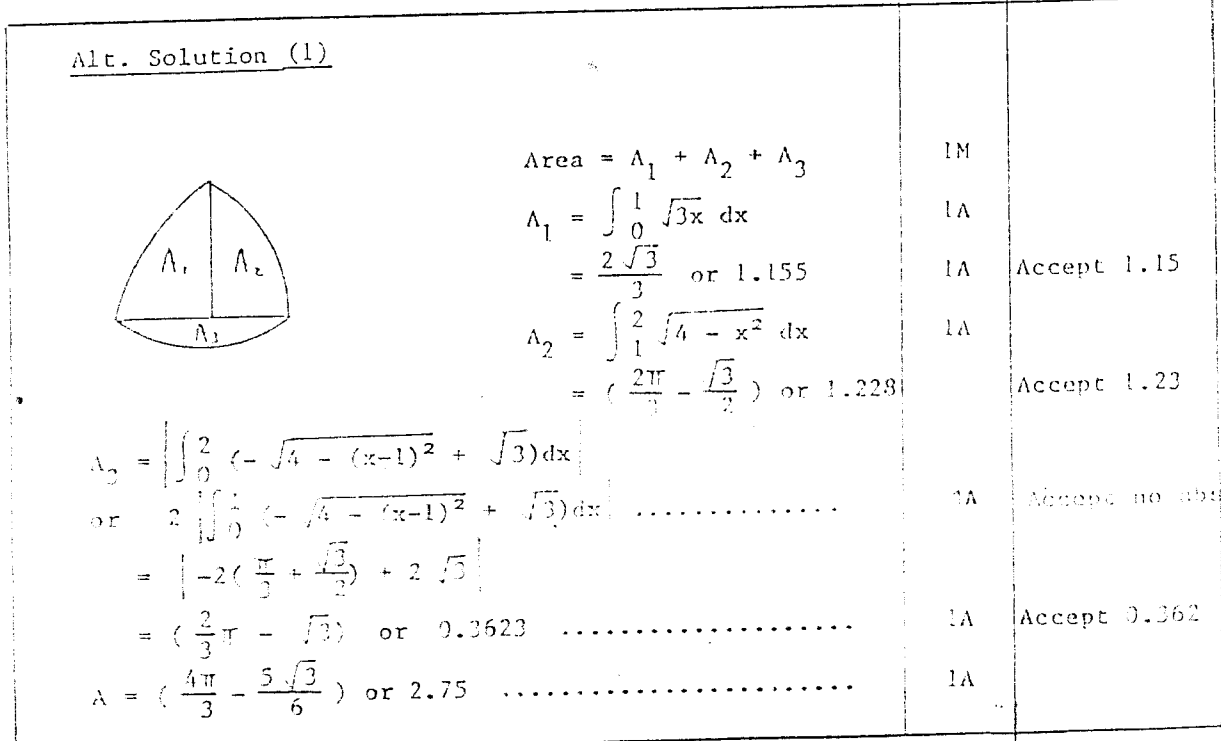 Alt. Solution (1)
Area = A₁ + A₂ + A₃ 1M
A₁ = ∫₀¹ √3x dx 1A
= 2√3/3 or 1.155 1A Accept 1.15
A₂ = ∫₁² √(4 - x²) dx 1A
= (2π/3 - √3/2) or 1.228 Accept 1.23
A₁ A₂
A₃
A₃ = |∫₀² (-√(4 - (x-1)²) + √3)dx|
or 2 |∫₀¹ (-√(4 - (x-1)²) + √3)dx| .............. 1A Accept no abs
= |-2(π/3 + √3/2) + 2√3|
= (2/3 π - √3) or 0.3623 .................... 1A Accept 0.362
A = (4π/3 - 5√3/6) or 2.75 ........................ 1A